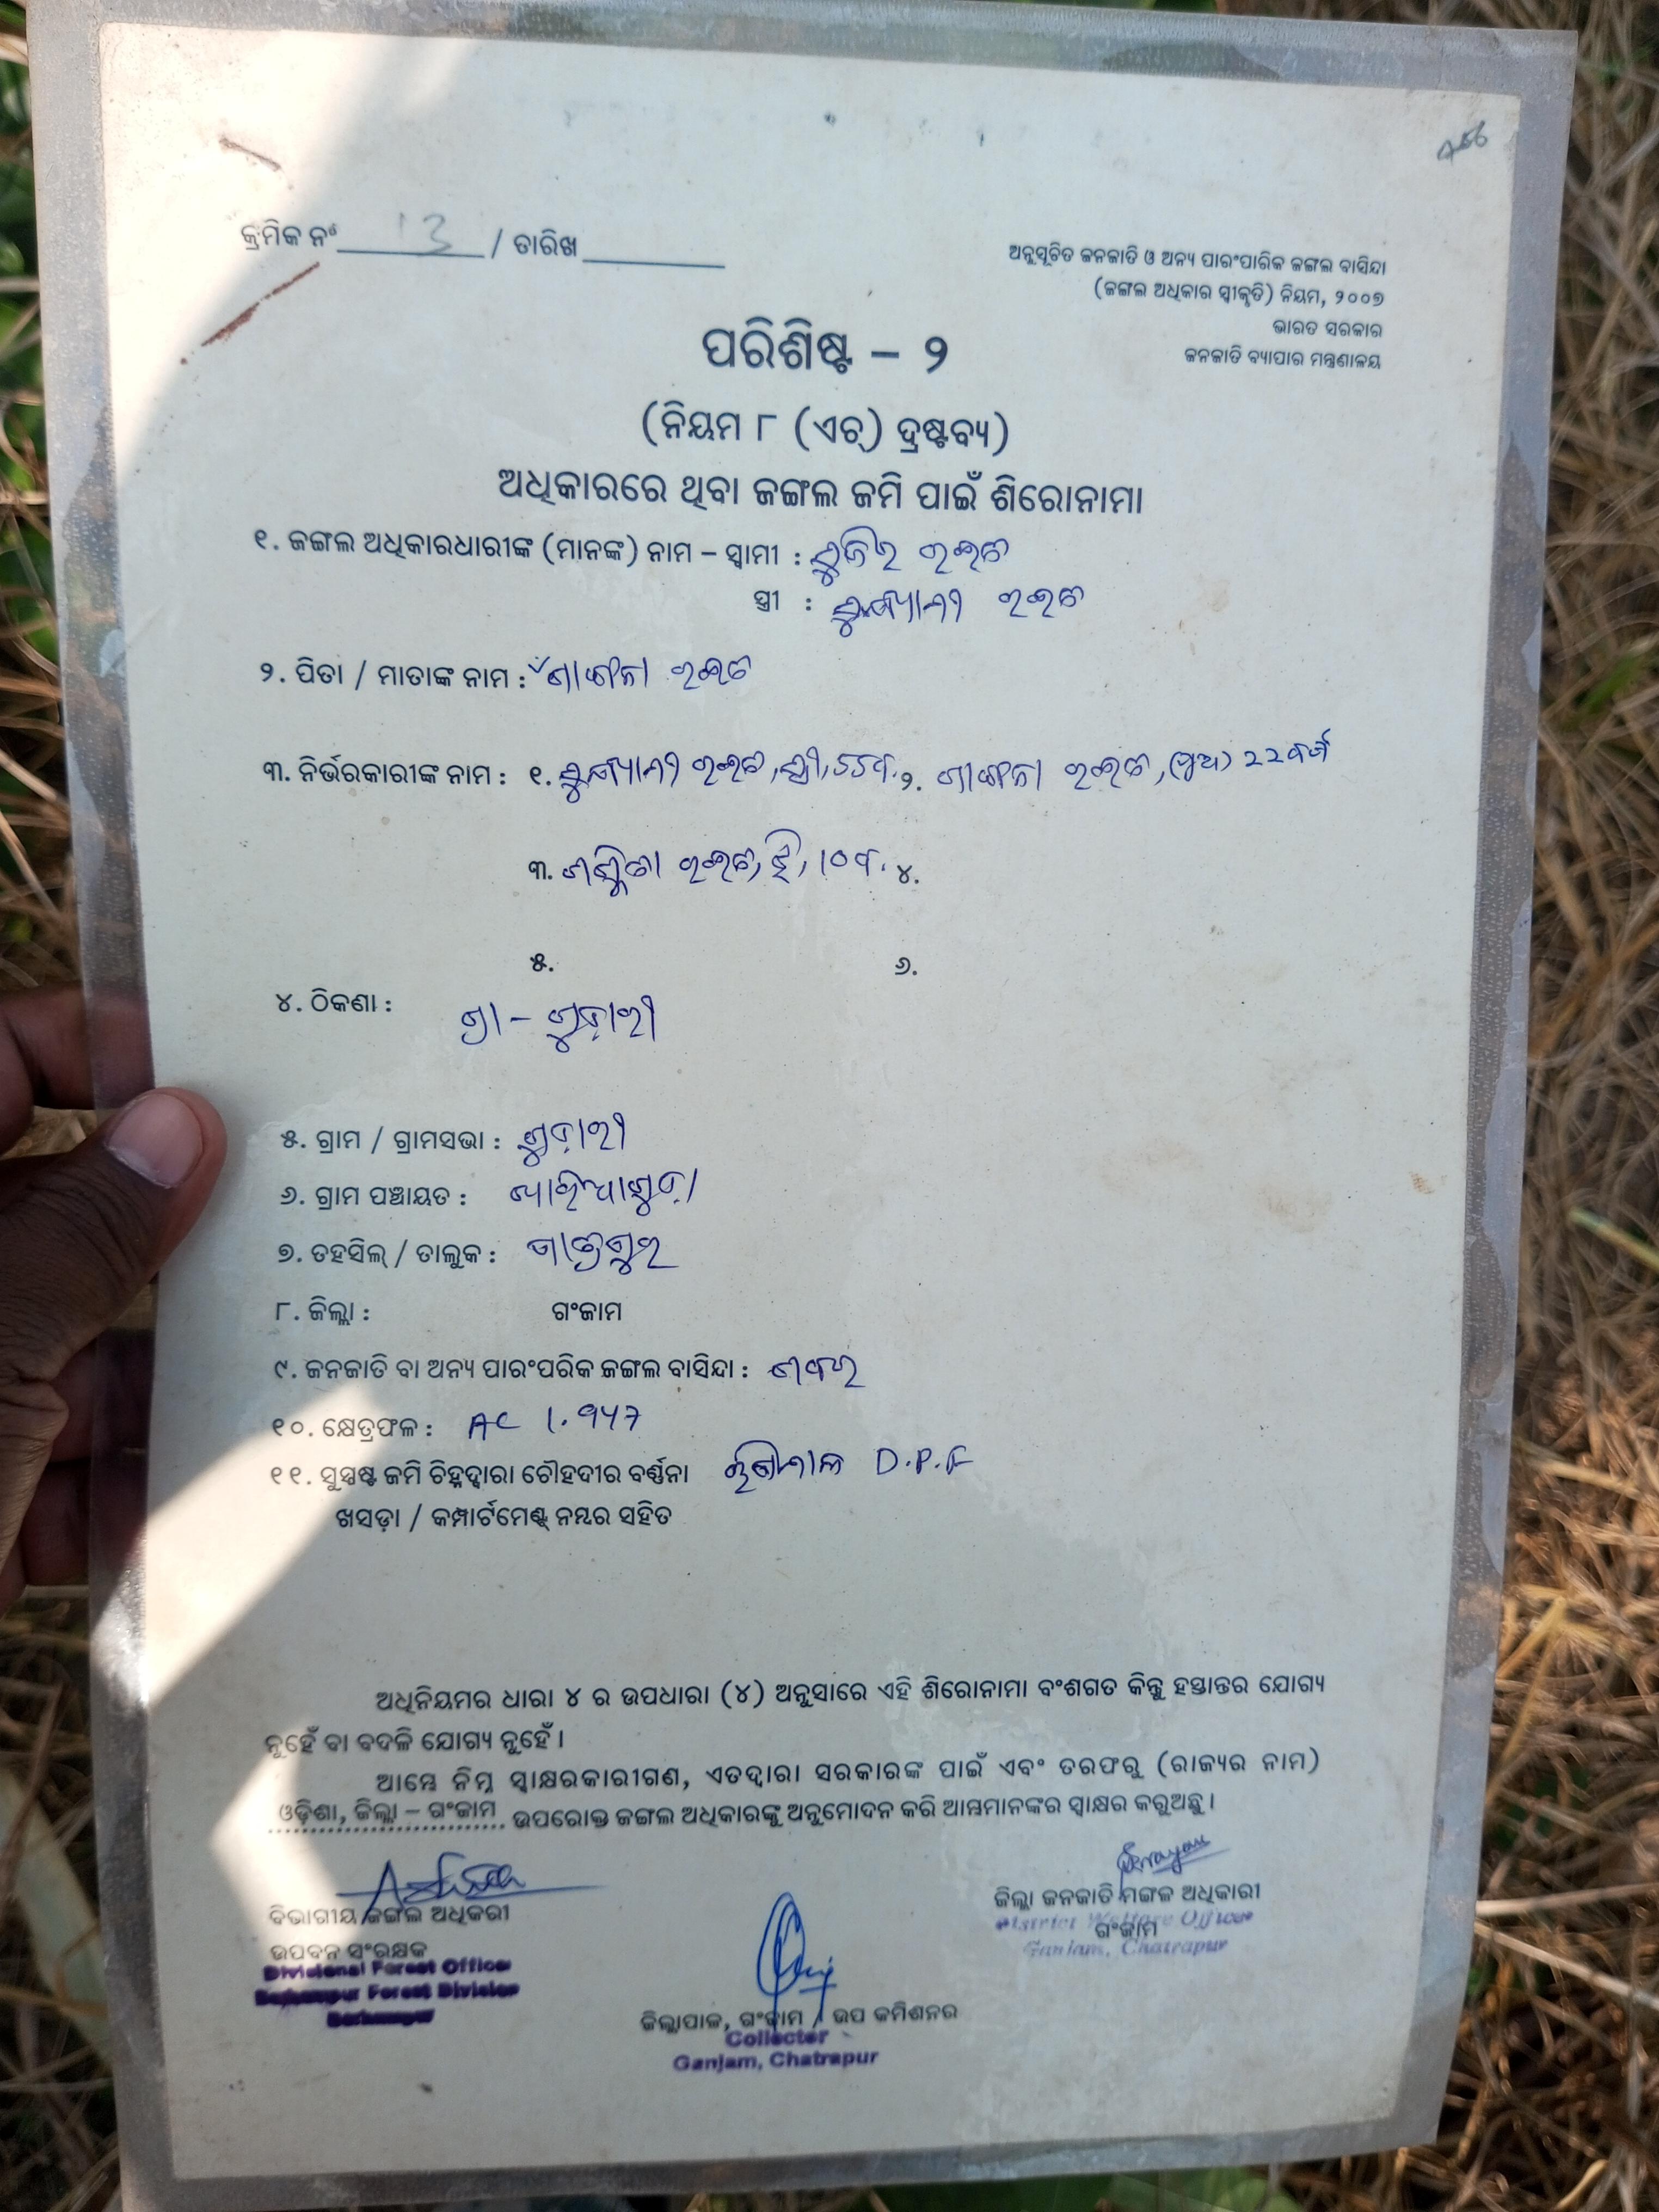 କ୍ରମିକ ନଂ 13 / ତାରିଖ
ଅନୁସୂଚିତ ଜନଜାତି ଓ ଅନ୍ୟ ପାରଂପାରିକ ଜଙ୍ଗଲ ବାସିନ୍ଦା
(ଜଙ୍ଗଲ ଅଧିକାର ସ୍ୱୀକୃତି) ନିୟମ, ୨୦୦୭
ଭାରତ ସରକାର
ଜନଜାତି ବ୍ୟାପାର ମନ୍ତ୍ରଣାଳୟ
ପରିଶିଷ୍ଟ – ୨
(ନିୟମ ୮ (ଏଚ୍) ଦ୍ରଷ୍ଟବ୍ୟ)
ଅଧିକାରରେ ଥିବା ଜଙ୍ଗଲ ଜମି ପାଇଁ ଶିରୋନାମା
୧. ଜଙ୍ଗଲ ଅଧିକାରଧାରୀଙ୍କ (ମାନଙ୍କ) ନାମ – ସ୍ୱାମୀ : ରଇତ
ସ୍ତ୍ରୀ : ରଇତ
୨. ପିତା / ମାତାଙ୍କ ନାମ : ରଇତ
୩. ନିର୍ଭରକାରୀଙ୍କ ନାମ : ୧. ରଇତ, ସ୍ତ୍ରୀ, ୨. ରଇତ, (ପୁଅ) 22 ବର୍ଷ
୩. ରଇତ, ଝି, 10 ବ. ୪.
୫. ୬.
୪. ଠିକଣା : ଗ୍ରା –
୫. ଗ୍ରାମ / ଗ୍ରାମସଭା :
୬. ଗ୍ରାମ ପଞ୍ଚାୟତ :
୭. ତହସିଲ୍ / ତାଲୁକ : ପାତ୍ରପୁର
୮. ଜିଲ୍ଲା : ଗଂଜାମ
୯. ଜନଜାତି ବା ଅନ୍ୟ ପାରଂପରିକ ଜଙ୍ଗଲ ବାସିନ୍ଦା : ଶବର
୧୦. କ୍ଷେତ୍ରଫଳ : AC
୧୧. ସୁସ୍ପଷ୍ଟ ଜମି ଚିହ୍ନଦ୍ୱାରା ଚୌହଦୀର ବର୍ଣ୍ଣନା D.P.F
ଖସଡ଼ା / କମ୍ପାର୍ଟମେଣ୍ଟ ନମ୍ବର ସହିତ
ଅଧିନିୟମର ଧାରା ୪ ର ଉପଧାରା (୪) ଅନୁସାରେ ଏହି ଶିରୋନାମା ବଂଶଗତ କିନ୍ତୁ ହସ୍ତାନ୍ତର ଯୋଗ୍ୟ
ନୁହେଁ ବା ବଦଳି ଯୋଗ୍ୟ ନୁହେଁ।
ଆମ୍ଭେ ନିମ୍ନ ସ୍ୱାକ୍ଷରକାରୀଗଣ, ଏତଦ୍ୱାରା ସରକାରଙ୍କ ପାଇଁ ଏବଂ ତରଫରୁ (ରାଜ୍ୟର ନାମ)
ଓଡ଼ିଶା, ଜିଲ୍ଲା – ଗଂଜାମ ଉପରୋକ୍ତ ଜଙ୍ଗଲ ଅଧିକାରଙ୍କୁ ଅନୁମୋଦନ କରି ଆମ୍ଭମାନଙ୍କର ସ୍ୱାକ୍ଷର କରୁଅଛୁ।
ବିଭାଗୀୟ ଜଙ୍ଗଲ ଅଧିକାରୀ
ଉପବନ ସଂରକ୍ଷକ
Divisional Forest Officer
Berhampur Forest Division
Berhampur
ଜିଲ୍ଲାପାଳ, ଗଂଜାମ / ଉପ କମିଶନର
Collector
Ganjam, Chatrapur
ଜିଲ୍ଲା ଜନଜାତି ମଙ୍ଗଳ ଅଧିକାରୀ
ଗଂଜାମ
District Welfare Officer
Ganjam, Chatrapur